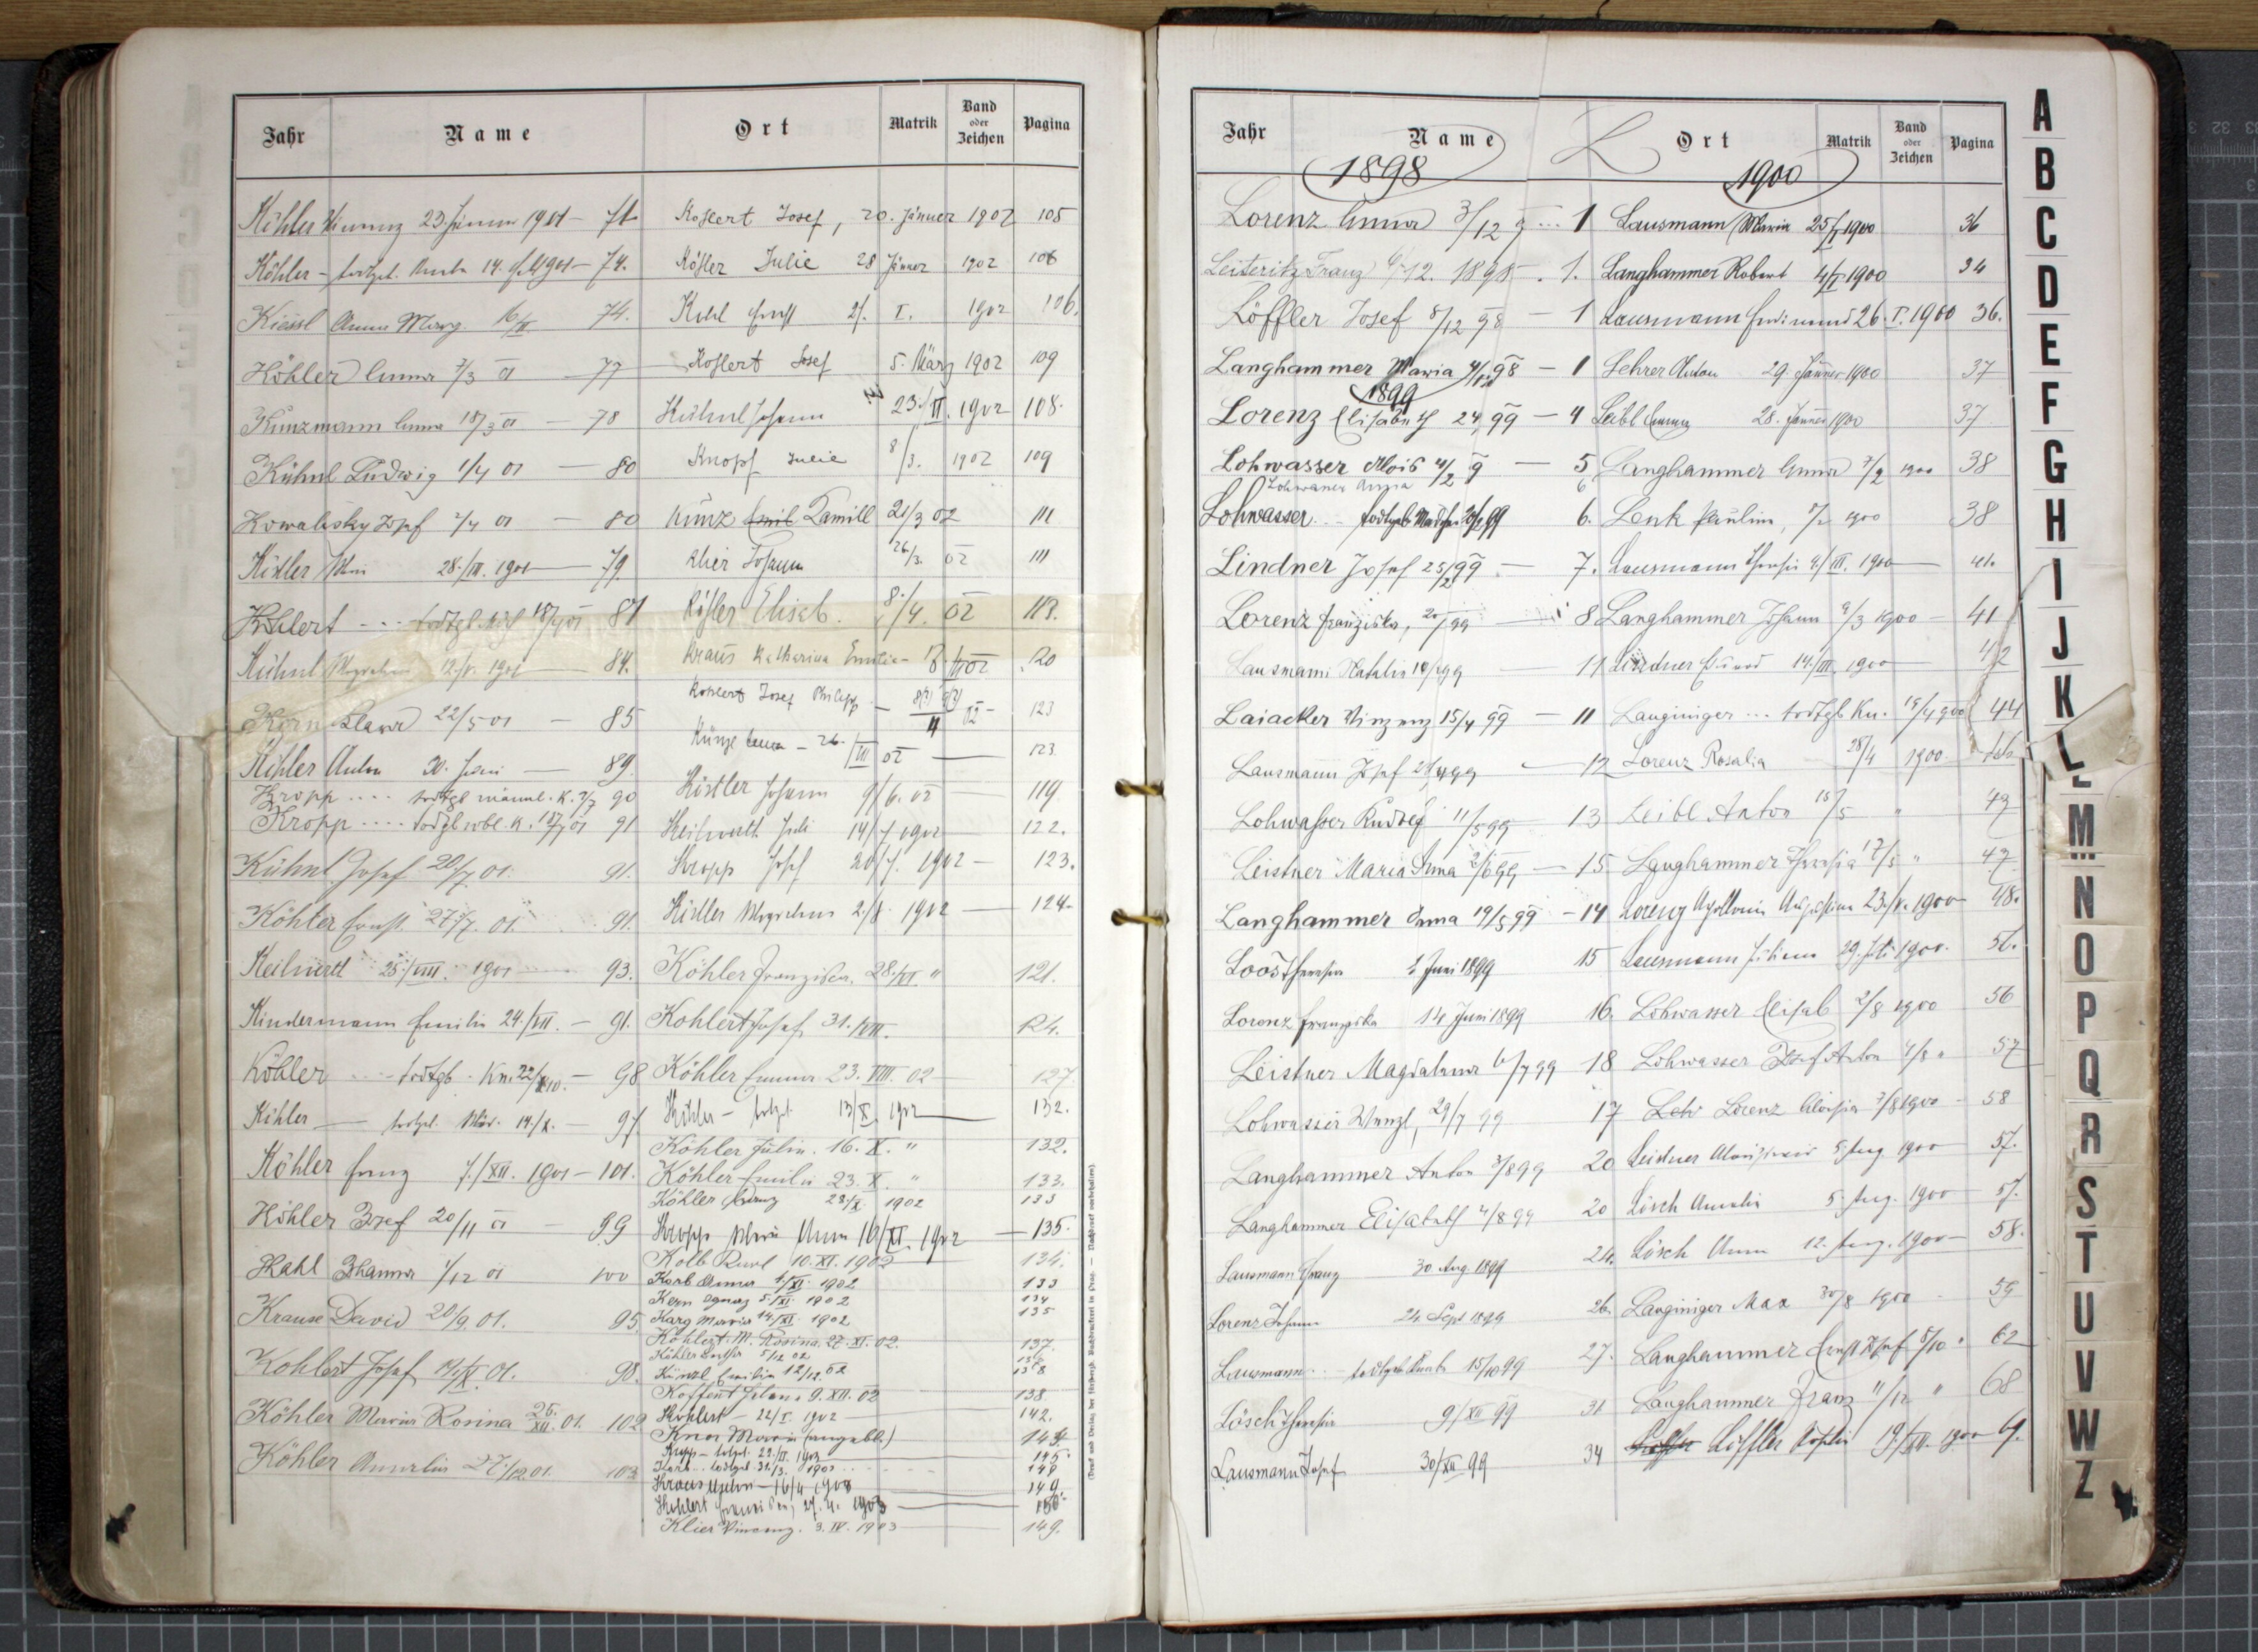 Jahr Name Ort Matrik Band oder Zeichen Pagina
Köhler Vinzenz 23. Jänner 1901 — 71
Köhler — todtgeb. 14. 1901 — 74.
Kiessl Anna Marg. 16/II 74.
Köhler Anna 7/3 01 — 77
Kunzmann Anna 18/3 01 — 78
Kühnl Ludwig 1/4 01 — 80
Kowalisky Josef 2/4 01 — 80
28./III. 1901 — 79
Kühnl 12./V. 1901 — 84.
Korn 22/5 01 — 85
Köhler Anton 30. Juni — 89.
Kropp .... todtgb männl. K. 90
Kropp .... todtgb wbl. K. 91
Kühnl Josef 20/7 01. 91.
Köhler Ernst 27/7. 01. 91.
Keilwerth 25./VIII. 1901 93.
Kindermann Emilie 24./VII. — 91.
Köhler ---- todtgb. Kn. — 98
Köhler — todtgeb. 14./X. — 97
Köhler Franz 7./XII. 1901 — 101.
Köhler Josef 20/11 01 — 99
Kahl Johanna 1/12 01 100
Krause David 20/9. 01. 95
Kohlert Josef 01. 98.
Köhler Maria Rosina 26. XII. 01. 102
Köhler Amalia 27/12 01. 103
Kohlert Josef, 20. Jänner 1902 105
Köhler Julie 28 Jänner 1902 106
Kohl Ernst 2/. I. 1902 106.
Kohlert Josef 5. März 1902 109
Kühnl Johann 23./II. 1902 108.
Knopf Julie 8/3. 1902 109
Kunz Emil Kamill 21/3 02 111
Klier Johann 26/3. 02 111
Köhler Elisab. 8./4. 02 113.
Kraus Katharina Emilie 120
Kohlert Josef Philipp 123
Künzl — 26. /VII 02 — 123
Köstler Johann 9/6. 02 — 119
Keilwerth Juli 14/7 1902 122.
Kropp Josef 20/7. 1902 — 123.
2./8. 1902 — 124.
Köhler Franziska. 28./VI. " 121.
Kohlert Josef 31. /VII. 124.
Köhler Emma 23. VIII. 02 127
Köhler — todtgeb. 13/X. 1902 — 132.
Köhler Julie. 16. X. " 132.
Köhler Emilie 23. X. " 133.
Köhler Franz 28/X. 1902 133
Kropp Maria Anna 16/XI. 1902 — 135.
Kolb Karl 10. XI. 1902 134.
Korb Anna 1/XI. 1902 133
Kern Ignaz 5./XI. 1902 134
Karg Maria 14/XI. 1902 135
Kohlert M. Rosina. 27. XI. 02. 137.
Köhler 5/12 02
Künzl Emilie 12/12. 02 138
9. XII. 02 138.
Kohlert — 22/I. 1902 142.
Knor Maria (ungebl.) 144.
Kropp — todtgeb. 22./II. 1903 145.
Korb .. todtgeb. 31./3. 1903 ... 148
Kraus — 16/4 1903 149
Kohlert 27. 4. 1903 150
Klier Vinzenz. 3. IV. 1903 149.
(Druck und Verlag bei Rohliczek, Buchdruckerei in Prag. — Nachdruck vorbehalten).
L
Jahr Name Ort Matrik Band oder Zeichen Pagina
1898
Lorenz Anna 3/12 9 ... 1
Leiteritz Franz 6/12. 1898 . 1.
Löffler Josef 8/12 98 — 1
Langhammer Maria 98 — 1
1899
Lorenz Elisabeth 24 99 — 4
Lohwasser Alois 4/2 9 — 5
Lohwasser Anna 6
Lohwasser .... todtgeb Mädchen 99 6.
Lindner Josef 25/2 99 — 7.
Lorenz Franziska, 99 8
Lausmann Natalie 99 — 11
Laiacker Vinzenz 15/4 99 — 11
Lausmann Josef 99 — 12
Lohwasser Rudolf 11/5 99 — 13
Leistner Maria Anna 2/6 99 — 15
Langhammer Anna 19/5 99 — 14
Loos Theresia 2 Juni 1899 15
Lorenz Franziska 14 Juni 1899 16.
Leistner Magdalena 6/7 99 18
Lohwasser Wenzl, 29/7 99 17
Langhammer Anton 3/8 99 20
Langhammer Elisabeth 4/8 99 20
Lausmann Franz 30 Aug. 1899 24.
Lorenz Johann 24 Sept 1899 26.
Lausmann .. todtgeb Knabe 15/10 99 27.
Lösch Theresia 9/XII 99 31
Lausmann Josef 30/XII 99 34
1900
Lausmann Maria 25/I 1900 36
Langhammer Robert 4/I 1900 34
Lausmann Ferdinand 26. I. 1900 36.
Lehrer Anton 29. Jänner 1900 37
Leibl Emma 28. Jänner 1900 37
Langhammer Anna 7/2 1900 38
Lenk Paulina, 1900 38
Lausmann Theresia 4./III. 1900 — 41.
Langhammer Johann 9/3 1900 — 41
Lindner Eduard 14./III. 1900 — 42
Langiniger ... todtgb Kn. 15/4 900 44
Lorenz Rosalia 28/4 1900.
Leibl Anton 15/5 " 49
Langhammer Theresia 17/5 " 47
Lorenz Apollonia 23./V. 1900 48.
Lausmann Juliana 29. Juli 1900. 56.
Lohwasser Elisab 2/8 1900 56
Lohwasser Josef Anton 4/8 " 57
Leh Lorenz Aloisia 7/8 1900 — 58
Leistner 5. Aug 1900 — 57.
Lösch Amalie 5. Aug. 1900 — 57.
Lösch Anna 12. Aug. 1900 — 58.
Langiniger Max 30/8 1900 — 59
Langhammer Ernst Josef 5/10 " 62
Langhammer Franz 11/12 " 68
Löffler Sophie 19/XII. 1900
A
B
C
D
E
F
G
H
I
J
K
L
M
N
O
P
Q
R
S
T
U
V
W
Z